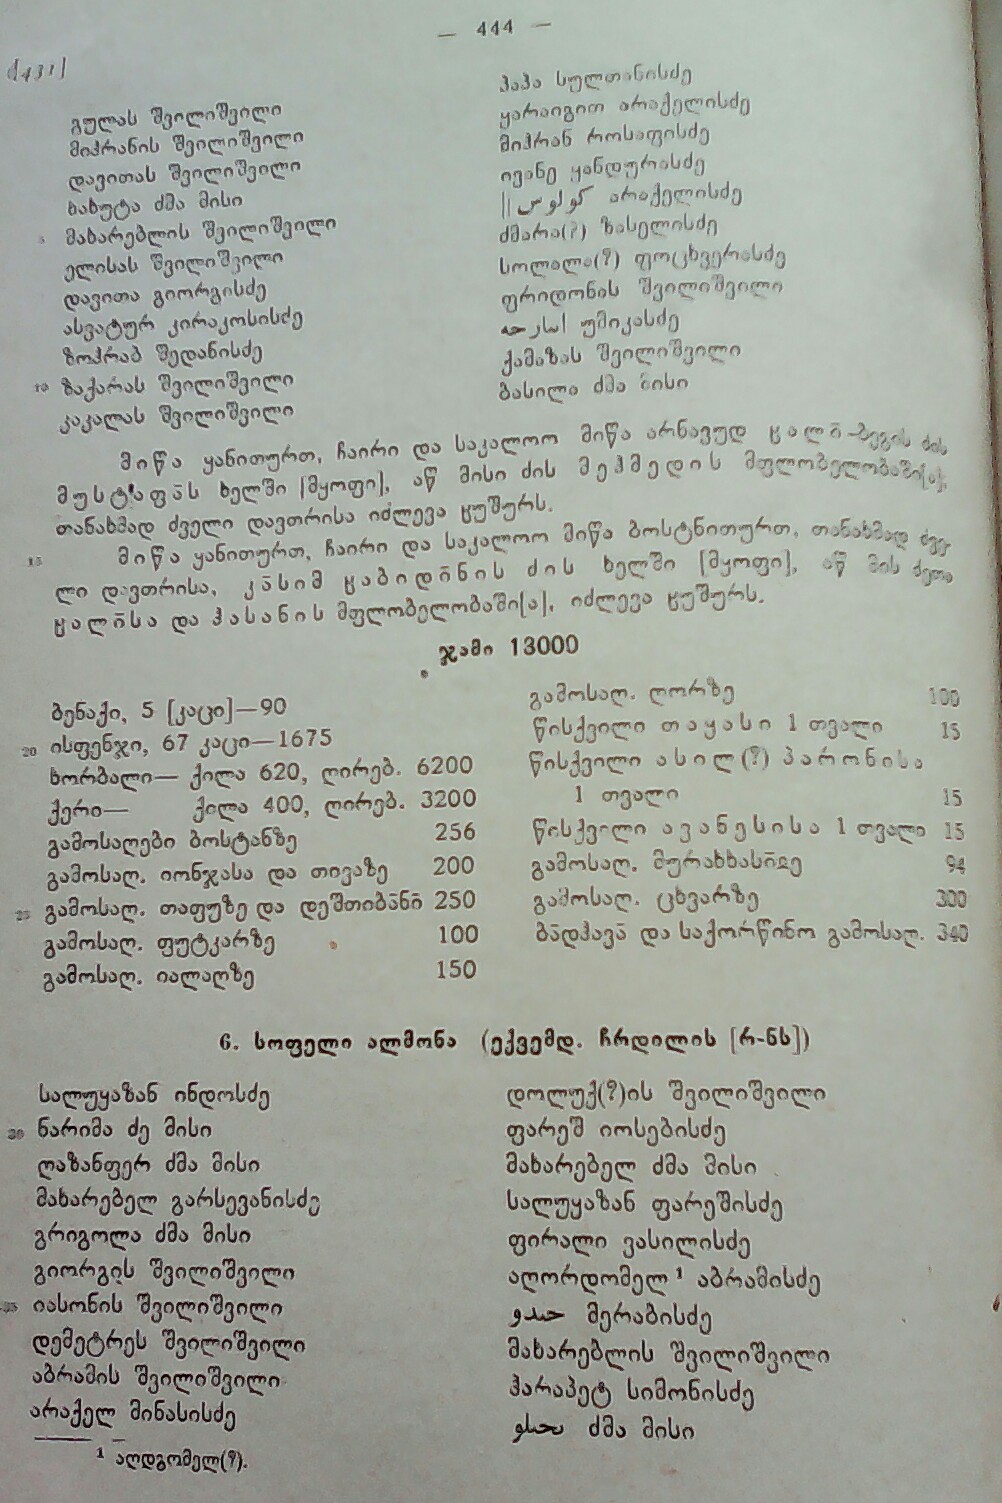 — 444 —
[431]
გულას შვილიშვილი
მიჰრანის შვილიშვილი
დავითას შვილიშვილი
ბაბუტა ძმა მისი
5 მახარებლის შვილიშვილი
ელისას შვილიშვილი
დავითა გიორგისძე
ასვატურ კირაკოსისძე
ზოჰრაბ შედანისძე
10 ზაქარას შვილიშვილი
კაკალას შვილიშვილი
პაპა სულთანისძე
ყარაიგით არაქელისძე
მიჰრან როსაფისძე
ივანე ყანდურასძე
|| كولوس არაქელისძე
ძმარა(?) ზასელისძე
სოლალა(?) ფოცხვერასძე
ფრიდონის შვილიშვილი
უმიკასძე
ქამაზას შვილიშვილი
ბასილა ძმა მისი
მიწა ყანითურთ, ჩაირი და საკალოო მიწა არნავუდ ჸალი-ბეგის ძის
მუსტაფას ხელში [მყოფი], აწ მისი ძის მეჰმედის მფლობელობაში[ა],
თანახმად ძველი დავთრისა იძლევა ჸუშურს.
15 მიწა ყანითურთ, ჩაირი და საკალოო მიწა ბოსტნითურთ, თანახმად ძვე-
ლი დავთრისა, კāსიმ ჸაბიდინის ძის ხელში [მყოფი], აწ მის ძეთა
ჸალისა და ჰასანის მფლობელობაში[ა], იძლევა ჸუშურს.
ჯამი 13000
ბენაქი, 5 [კაცი]—90
20 ისფენჯი, 67 კაცი—1675
ხორბალი— ქილა 620, ღირებ. 6200
ქერი— ქილა 400, ღირებ. 3200
გამოსაღები ბოსტანზე 256
გამოსაღ. იონჯასა და თივაზე 200
25 გამოსაღ. თაფუზე და დეშთიბანი 250
გამოსაღ. ფუტკარზე 100
გამოსაღ. იალაღზე 150
გამოსაღ. ღორზე 100
წისქვილი თაყასი 1 თვალი 15
წისქვილი ასილ(?) პარონისა
1 თვალი 15
წისქვილი ავანესისა 1 თვალი 15
გამოსაღ. მურახხასიჲე 94
გამოსაღ. ცხვარზე 300
ბāდჰავā და საქორწინო გამოსაღ. 340
6. სოფელი ალმონა (ექვემდ. ჩრდილის [რ-ნს])
სალუყაზან ინდოსძე
30 ნარიმა ძე მისი
ღაზანფერ ძმა მისი
მახარებელ გარსევანისძე
გრიგოლა ძმა მისი
გიორგის შვილიშვილი
35 იასონის შვილიშვილი
დემეტრეს შვილიშვილი
აბრამის შვილიშვილი
არაქელ მინასისძე
დოლუქ(?)ის შვილიშვილი
ფარეშ იოსებისძე
მახარებელ ძმა მისი
სალუყაზან ფარეშისძე
ფირალი ვასილისძე
აღორდომელ¹ აბრამისძე
მერაბისძე
მახარებლის შვილიშვილი
ჰარაპეტ სიმონისძე
ძმა მისი
¹ აღდგომელ(?).